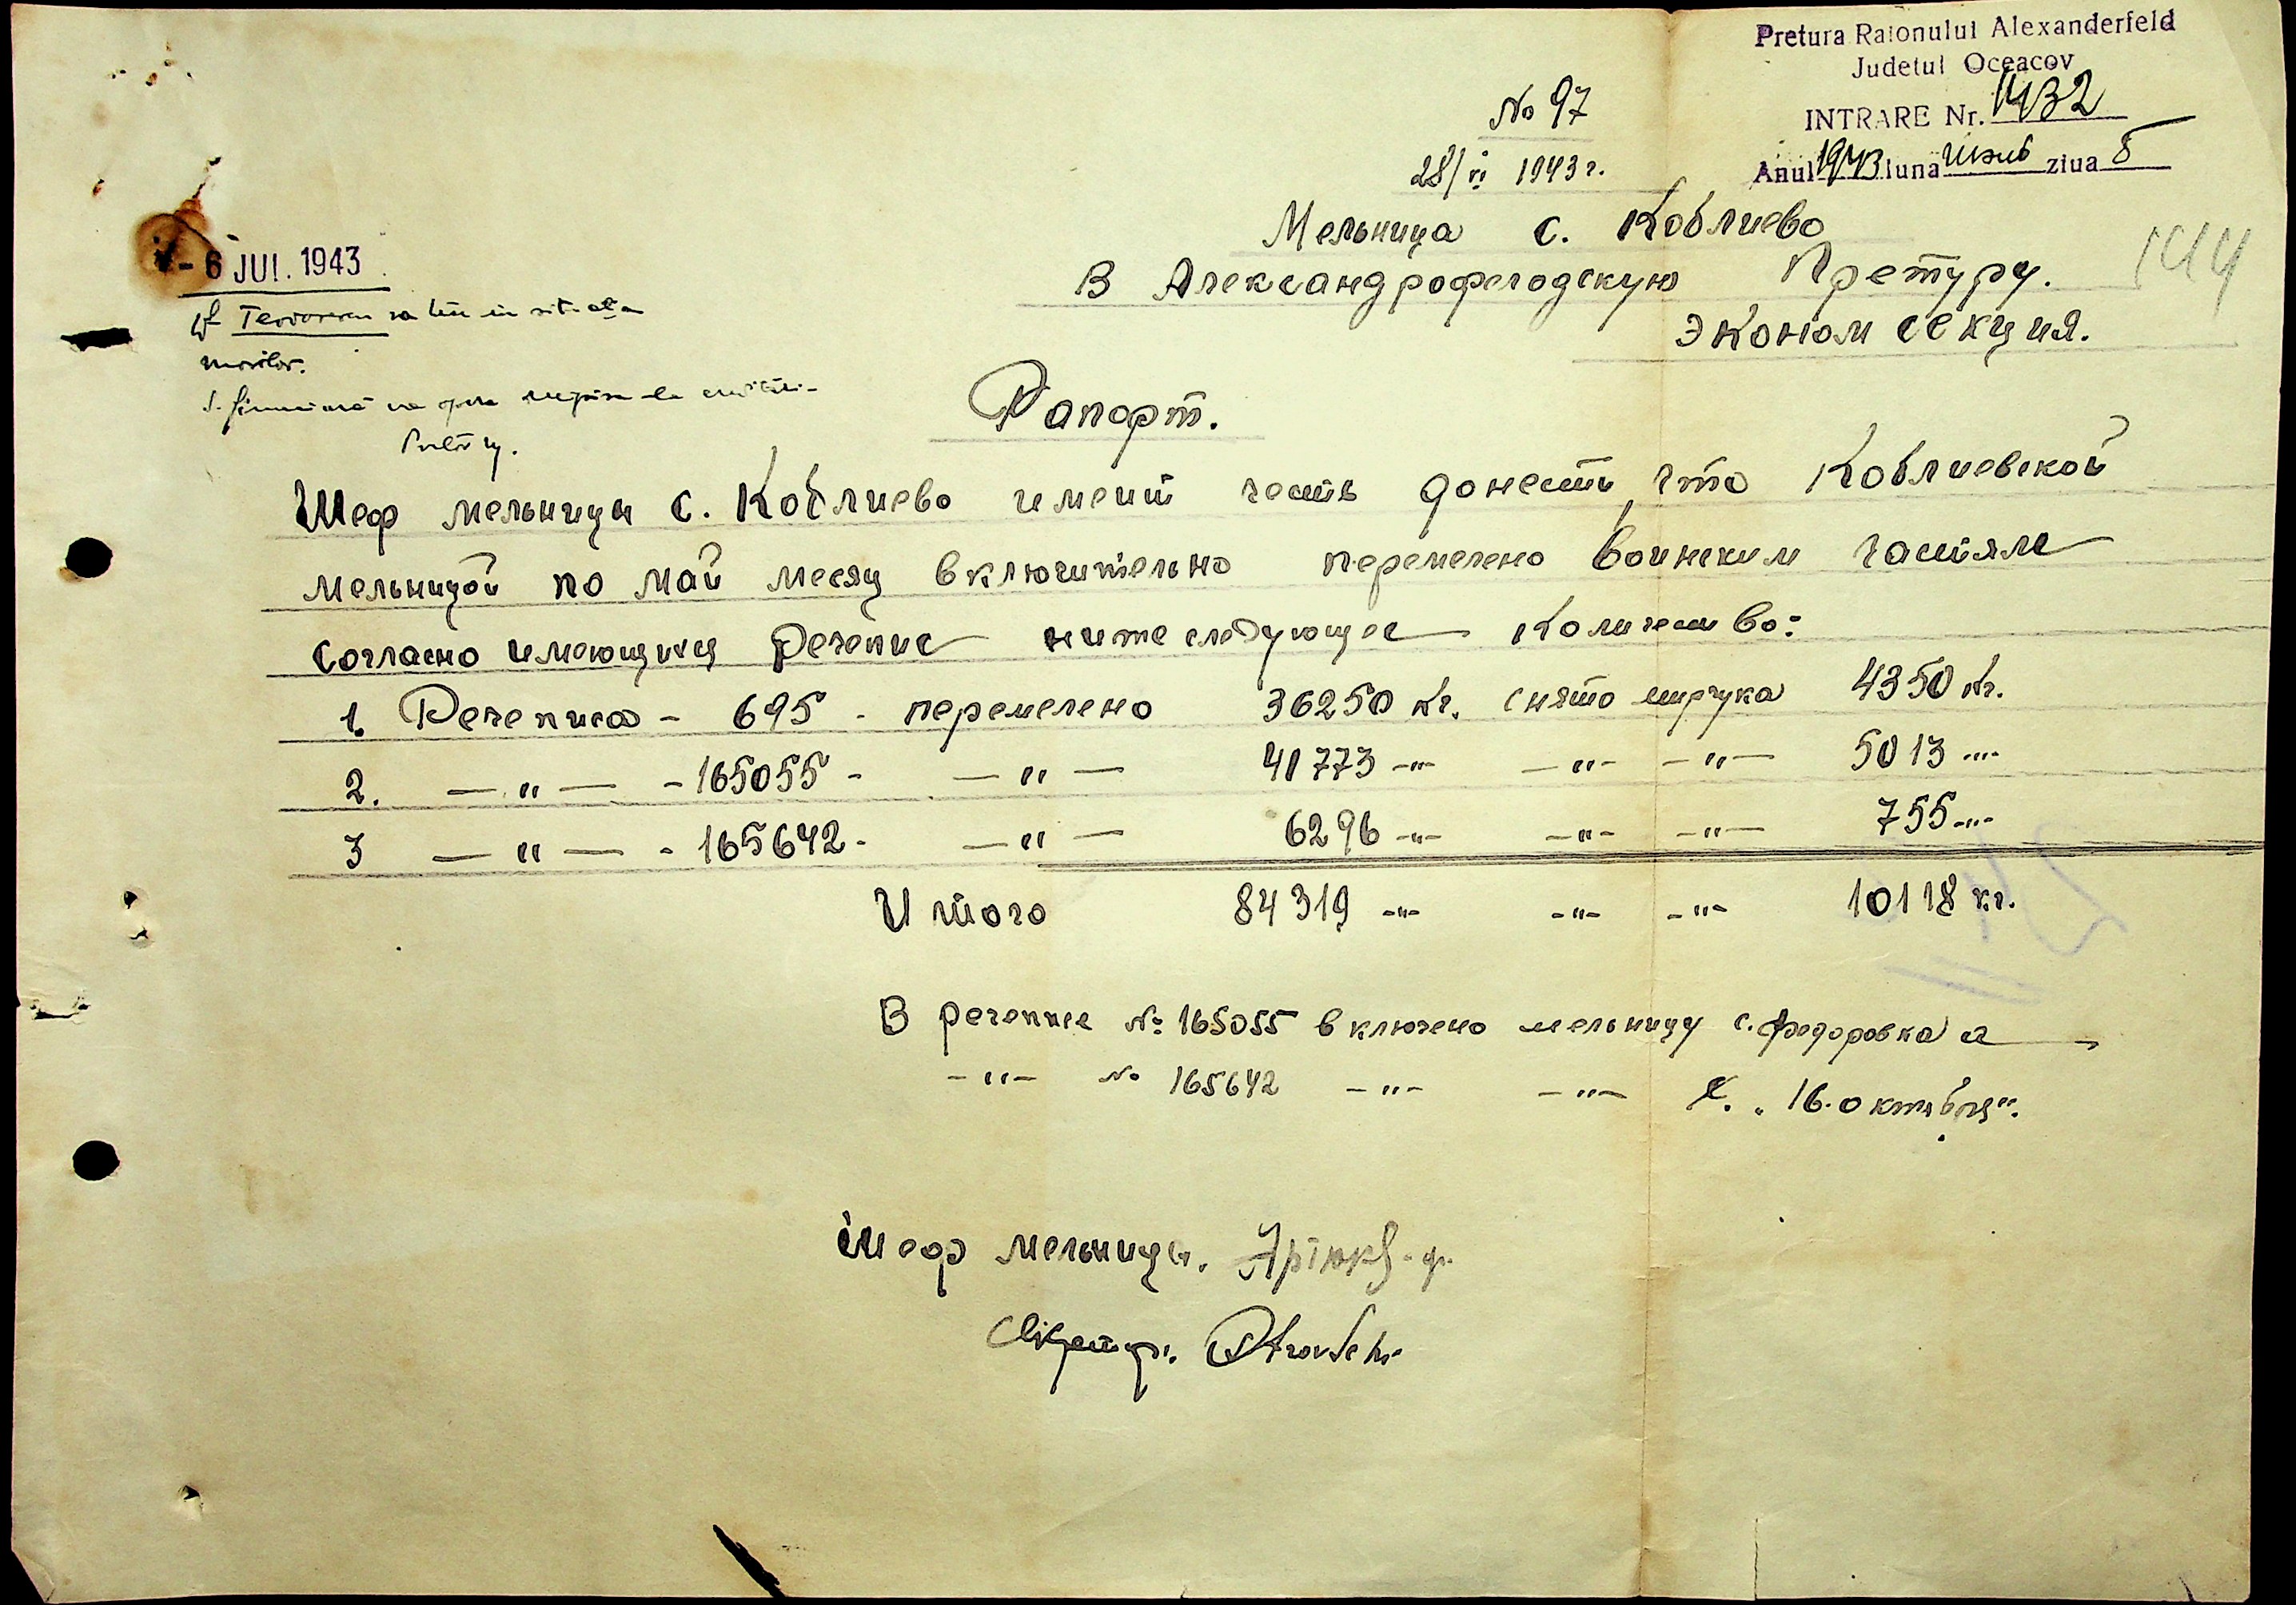 Pretura Raionului Alexanderfeld
Judetul Oceacov
INTRARE Nr. 1432
Anul 1943 luna июль ziua 5
№ 97
28/VI 1943 г.
Мельница с. Коблиево
В Александрофельдскую Претуру.
Эконом секция.
144
- 6 JUL. 1943
sa
morilor.
Рапорт.
Шеф мельницы с. Коблиево имеит честь донести, что Коблиевской
мельницой по май месяц включительно перемелено воинским частям
согласно имеющихся речепис ниже следующее количество:
1. Речеписа - 695 - перемелено 36250 кг. снято мирчука 4350 кг.
2. — " — - 165055 - — " — 41773 -"- -"- -"- 5013 -"-
3 — " — - 165642 - — " — 6296 -"- -"- -"- 755 -"-
Итого 84319 -"- -"- -"- 10118 кг.
В речепие № 165055 включено мельницу с. Федоровка а
-"- № 165642 -"- -"- х. „16. октября".
Шеф мельницы.
Секретарь.